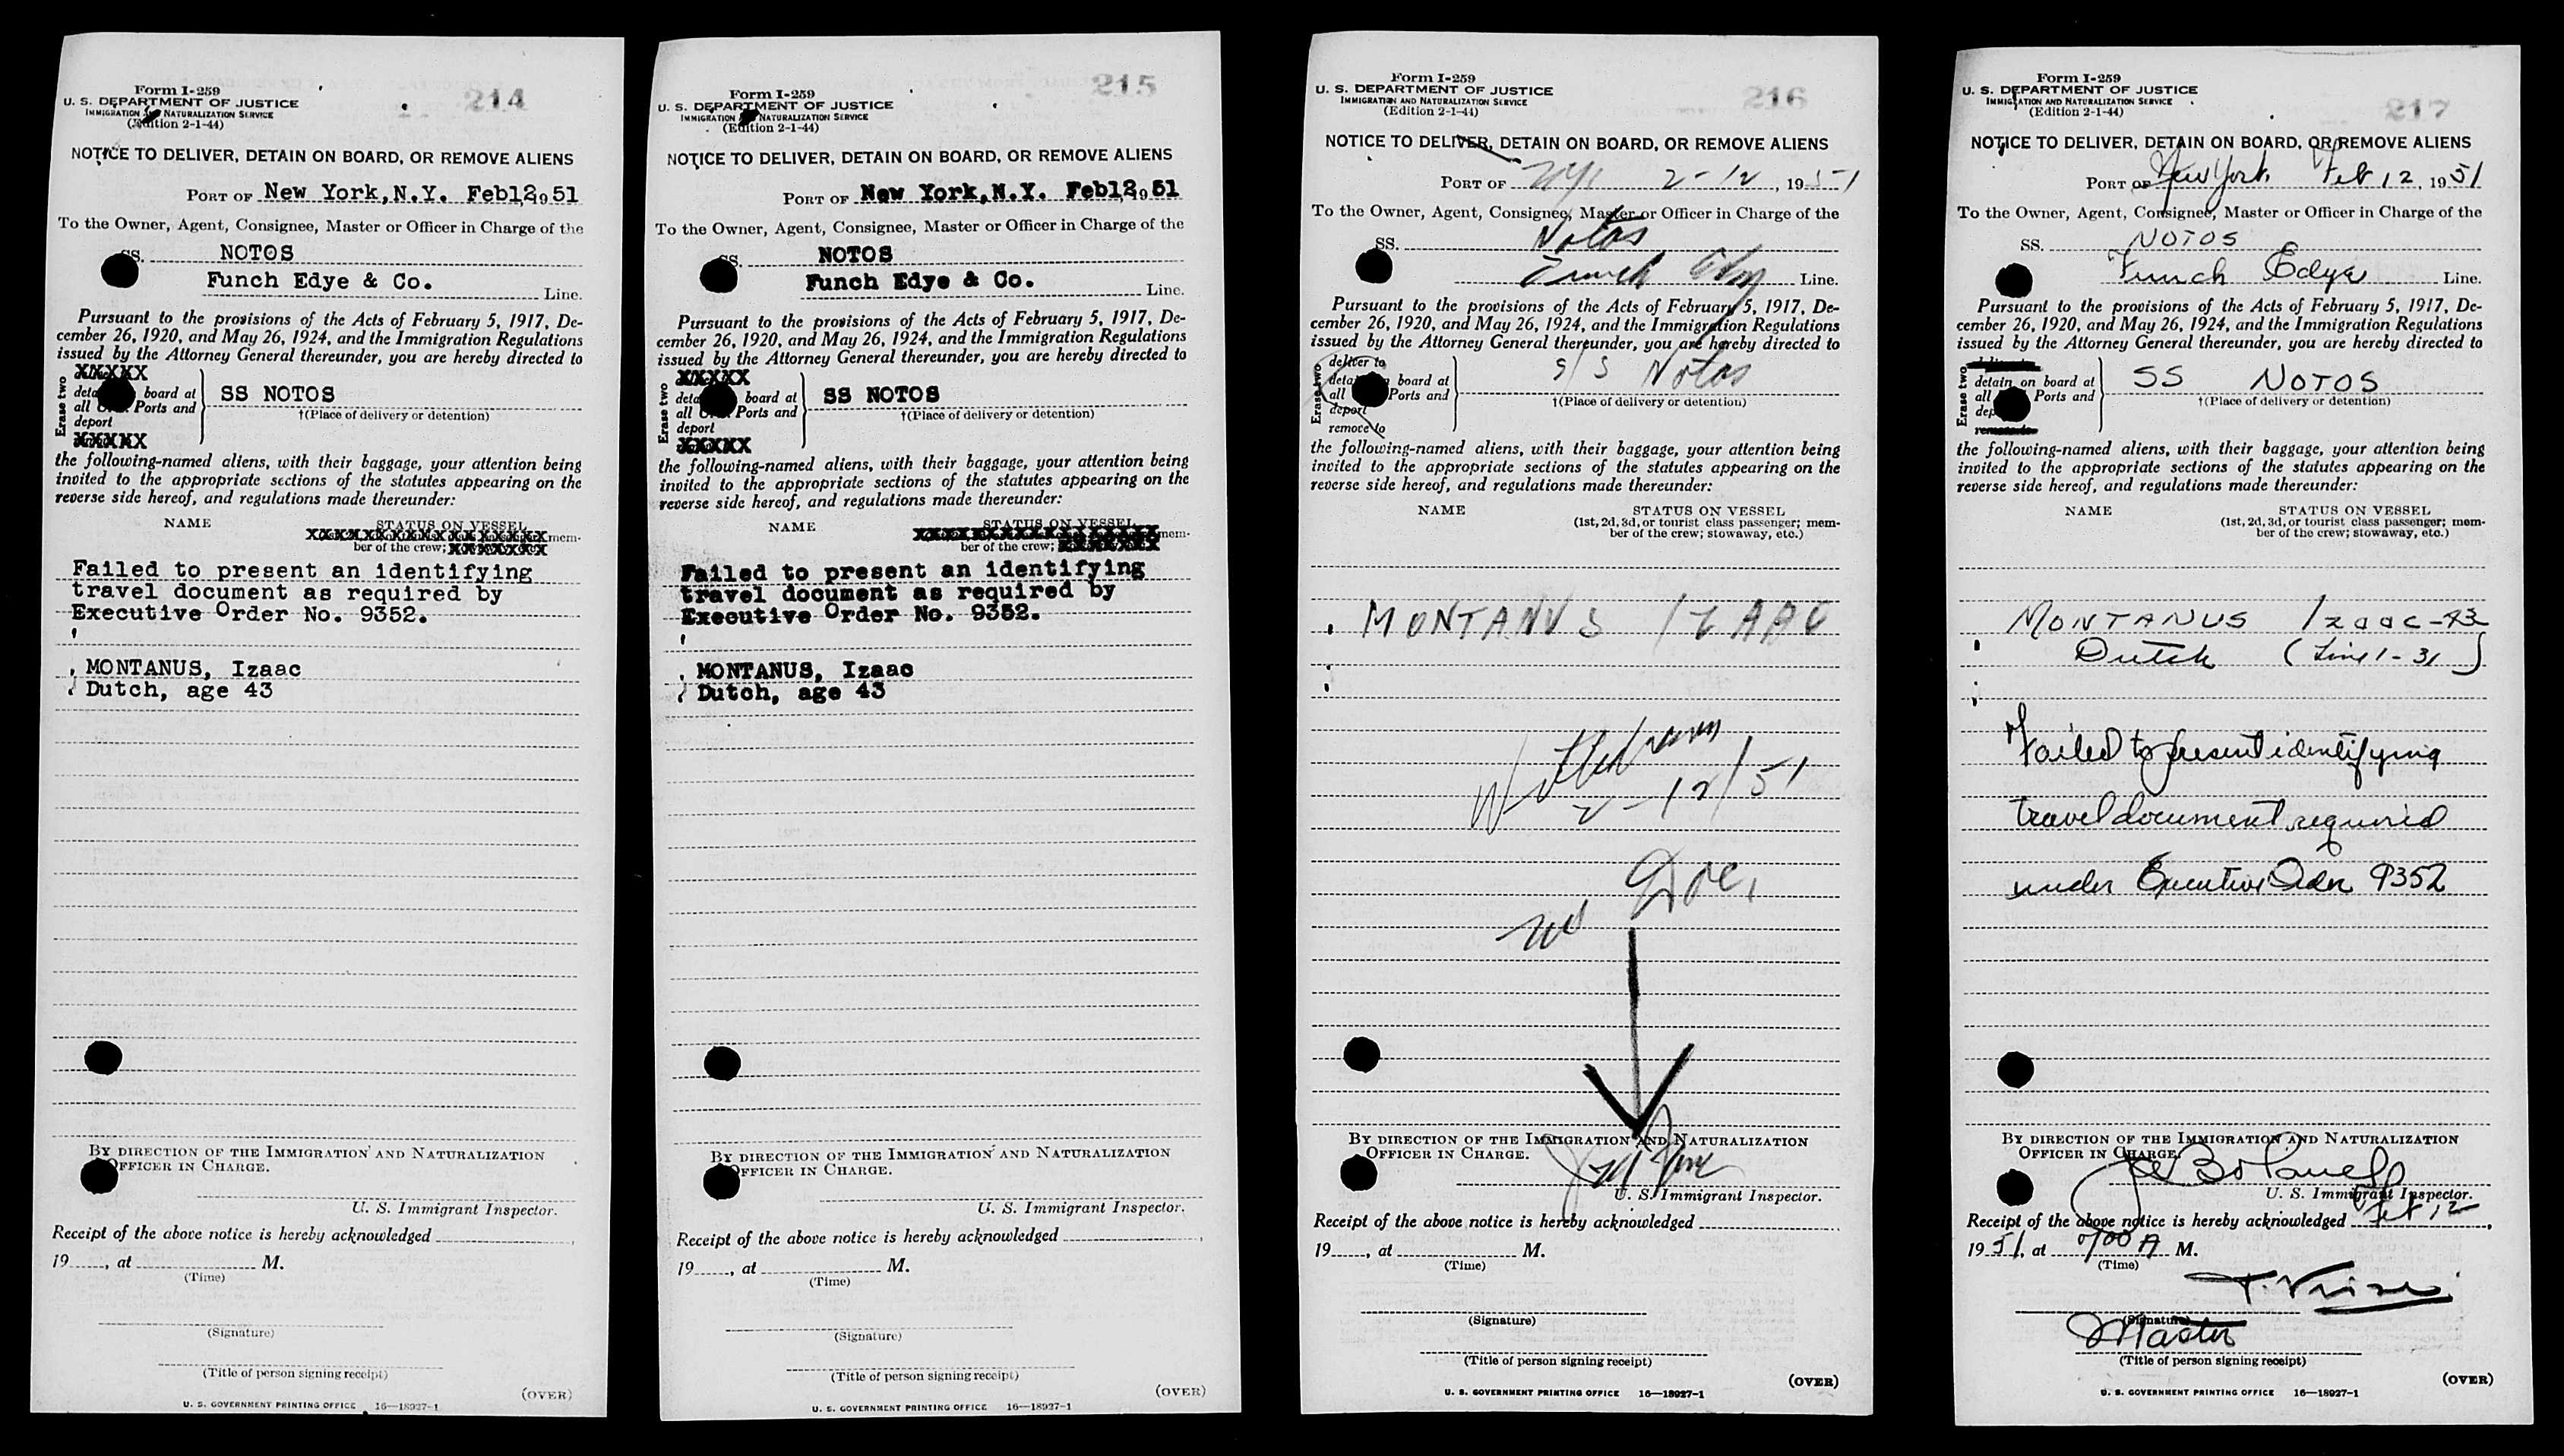 214
Form I-259
U. S. DEPARTMENT OF JUSTICE
IMMIGRATION AND NATURALIZATION SERVICE
(Edition 2-1-44)
NOTICE TO DELIVER, DETAIN ON BOARD, OR REMOVE ALIENS
PORT OF New York,N.Y. Feb12, 1951
To the Owner, Agent, Consignee, Master or Officer in Charge of the
SS. NOTOS
Funch Edye & Co. Line.
Pursuant to the provisions of the Acts of February 5, 1917, De-
cember 26, 1920, and May 26, 1924, and the Immigration Regulations
issued by the Attorney General thereunder, you are hereby directed to
Erase two
XXXXX
detain board at
all Ports and
deport
XXXXX
SS NOTOS
†(Place of delivery or detention)
the following-named aliens, with their baggage, your attention being
invited to the appropriate sections of the statutes appearing on the
reverse side hereof, and regulations made thereunder:
NAME STATUS ON VESSEL
XXXXXXXXXXXXXXXXXXXX mem-
ber of the crew; XXXXXXXX
Failed to present an identifying
travel document as required by
Executive Order No. 9352.
MONTANUS, Izaac
Dutch, age 43
BY DIRECTION OF THE IMMIGRATION AND NATURALIZATION
OFFICER IN CHARGE.
U. S. Immigrant Inspector.
Receipt of the above notice is hereby acknowledged
19 , at M.
(Time)
(Signature)
(Title of person signing receipt)
(OVER)
U. S. GOVERNMENT PRINTING OFFICE 16—18927-1
215
Form I-259
U. S. DEPARTMENT OF JUSTICE
IMMIGRATION AND NATURALIZATION SERVICE
(Edition 2-1-44)
NOTICE TO DELIVER, DETAIN ON BOARD, OR REMOVE ALIENS
PORT OF New York,N.Y. Feb12, 1951
To the Owner, Agent, Consignee, Master or Officer in Charge of the
SS. NOTOS
Funch Edye & Co. Line.
Pursuant to the provisions of the Acts of February 5, 1917, De-
cember 26, 1920, and May 26, 1924, and the Immigration Regulations
issued by the Attorney General thereunder, you are hereby directed to
Erase two
XXXXX
detain board at
all Ports and
deport
XXXXX
SS NOTOS
†(Place of delivery or detention)
the following-named aliens, with their baggage, your attention being
invited to the appropriate sections of the statutes appearing on the
reverse side hereof, and regulations made thereunder:
NAME STATUS ON VESSEL
XXXXXXXXXXXXXXXXXXXX mem-
ber of the crew; XXXXXXXX
Failed to present an identifying
travel document as required by
Executive Order No. 9352.
MONTANUS, Izaac
Dutch, age 43
BY DIRECTION OF THE IMMIGRATION AND NATURALIZATION
OFFICER IN CHARGE.
U. S. Immigrant Inspector.
Receipt of the above notice is hereby acknowledged
19 , at M.
(Time)
(Signature)
(Title of person signing receipt)
(OVER)
U. S. GOVERNMENT PRINTING OFFICE 16—18927-1
216
Form I-259
U. S. DEPARTMENT OF JUSTICE
IMMIGRATION AND NATURALIZATION SERVICE
(Edition 2-1-44)
NOTICE TO DELIVER, DETAIN ON BOARD, OR REMOVE ALIENS
PORT OF NY 2-12, 1951
To the Owner, Agent, Consignee, Master or Officer in Charge of the
SS. Notos
Funch Line.
Pursuant to the provisions of the Acts of February 5, 1917, De-
cember 26, 1920, and May 26, 1924, and the Immigration Regulations
issued by the Attorney General thereunder, you are hereby directed to
Erase two
deliver to
detain board at
all Ports and
deport
remove to
S/S Notos
†(Place of delivery or detention)
the following-named aliens, with their baggage, your attention being
invited to the appropriate sections of the statutes appearing on the
reverse side hereof, and regulations made thereunder:
NAME STATUS ON VESSEL
(1st, 2d, 3d, or tourist class passenger; mem-
ber of the crew; stowaway, etc.)
MONTANUS IZAAC
Withdrawn
2-12/51
no Doc,
BY DIRECTION OF THE IMMIGRATION AND NATURALIZATION
OFFICER IN CHARGE.
U. S. Immigrant Inspector.
Receipt of the above notice is hereby acknowledged
19 , at M.
(Time)
(Signature)
(Title of person signing receipt)
(OVER)
U. S. GOVERNMENT PRINTING OFFICE 16—18927-1
217
Form I-259
U. S. DEPARTMENT OF JUSTICE
IMMIGRATION AND NATURALIZATION SERVICE
(Edition 2-1-44)
NOTICE TO DELIVER, DETAIN ON BOARD, OR REMOVE ALIENS
PORT OF New York Feb 12, 1951
To the Owner, Agent, Consignee, Master or Officer in Charge of the
SS. NOTOS
Funch Edye Line.
Pursuant to the provisions of the Acts of February 5, 1917, De-
cember 26, 1920, and May 26, 1924, and the Immigration Regulations
issued by the Attorney General thereunder, you are hereby directed to
Erase two
detain on board at
all Ports and
deport
SS NOTOS
†(Place of delivery or detention)
the following-named aliens, with their baggage, your attention being
invited to the appropriate sections of the statutes appearing on the
reverse side hereof, and regulations made thereunder:
NAME STATUS ON VESSEL
(1st, 2d, 3d, or tourist class passenger; mem-
ber of the crew; stowaway, etc.)
MONTANUS Izaac-43
Dutch (Line 1-31)
Failed to present identifying
travel document required
under Executive Order 9352
BY DIRECTION OF THE IMMIGRATION AND NATURALIZATION
OFFICER IN CHARGE.
U. S. Immigrant Inspector.
Receipt of the above notice is hereby acknowledged Feb 12,
1951, at A M.
(Time)
(Signature)
Master
(Title of person signing receipt)
(OVER)
U. S. GOVERNMENT PRINTING OFFICE 16—18927-1